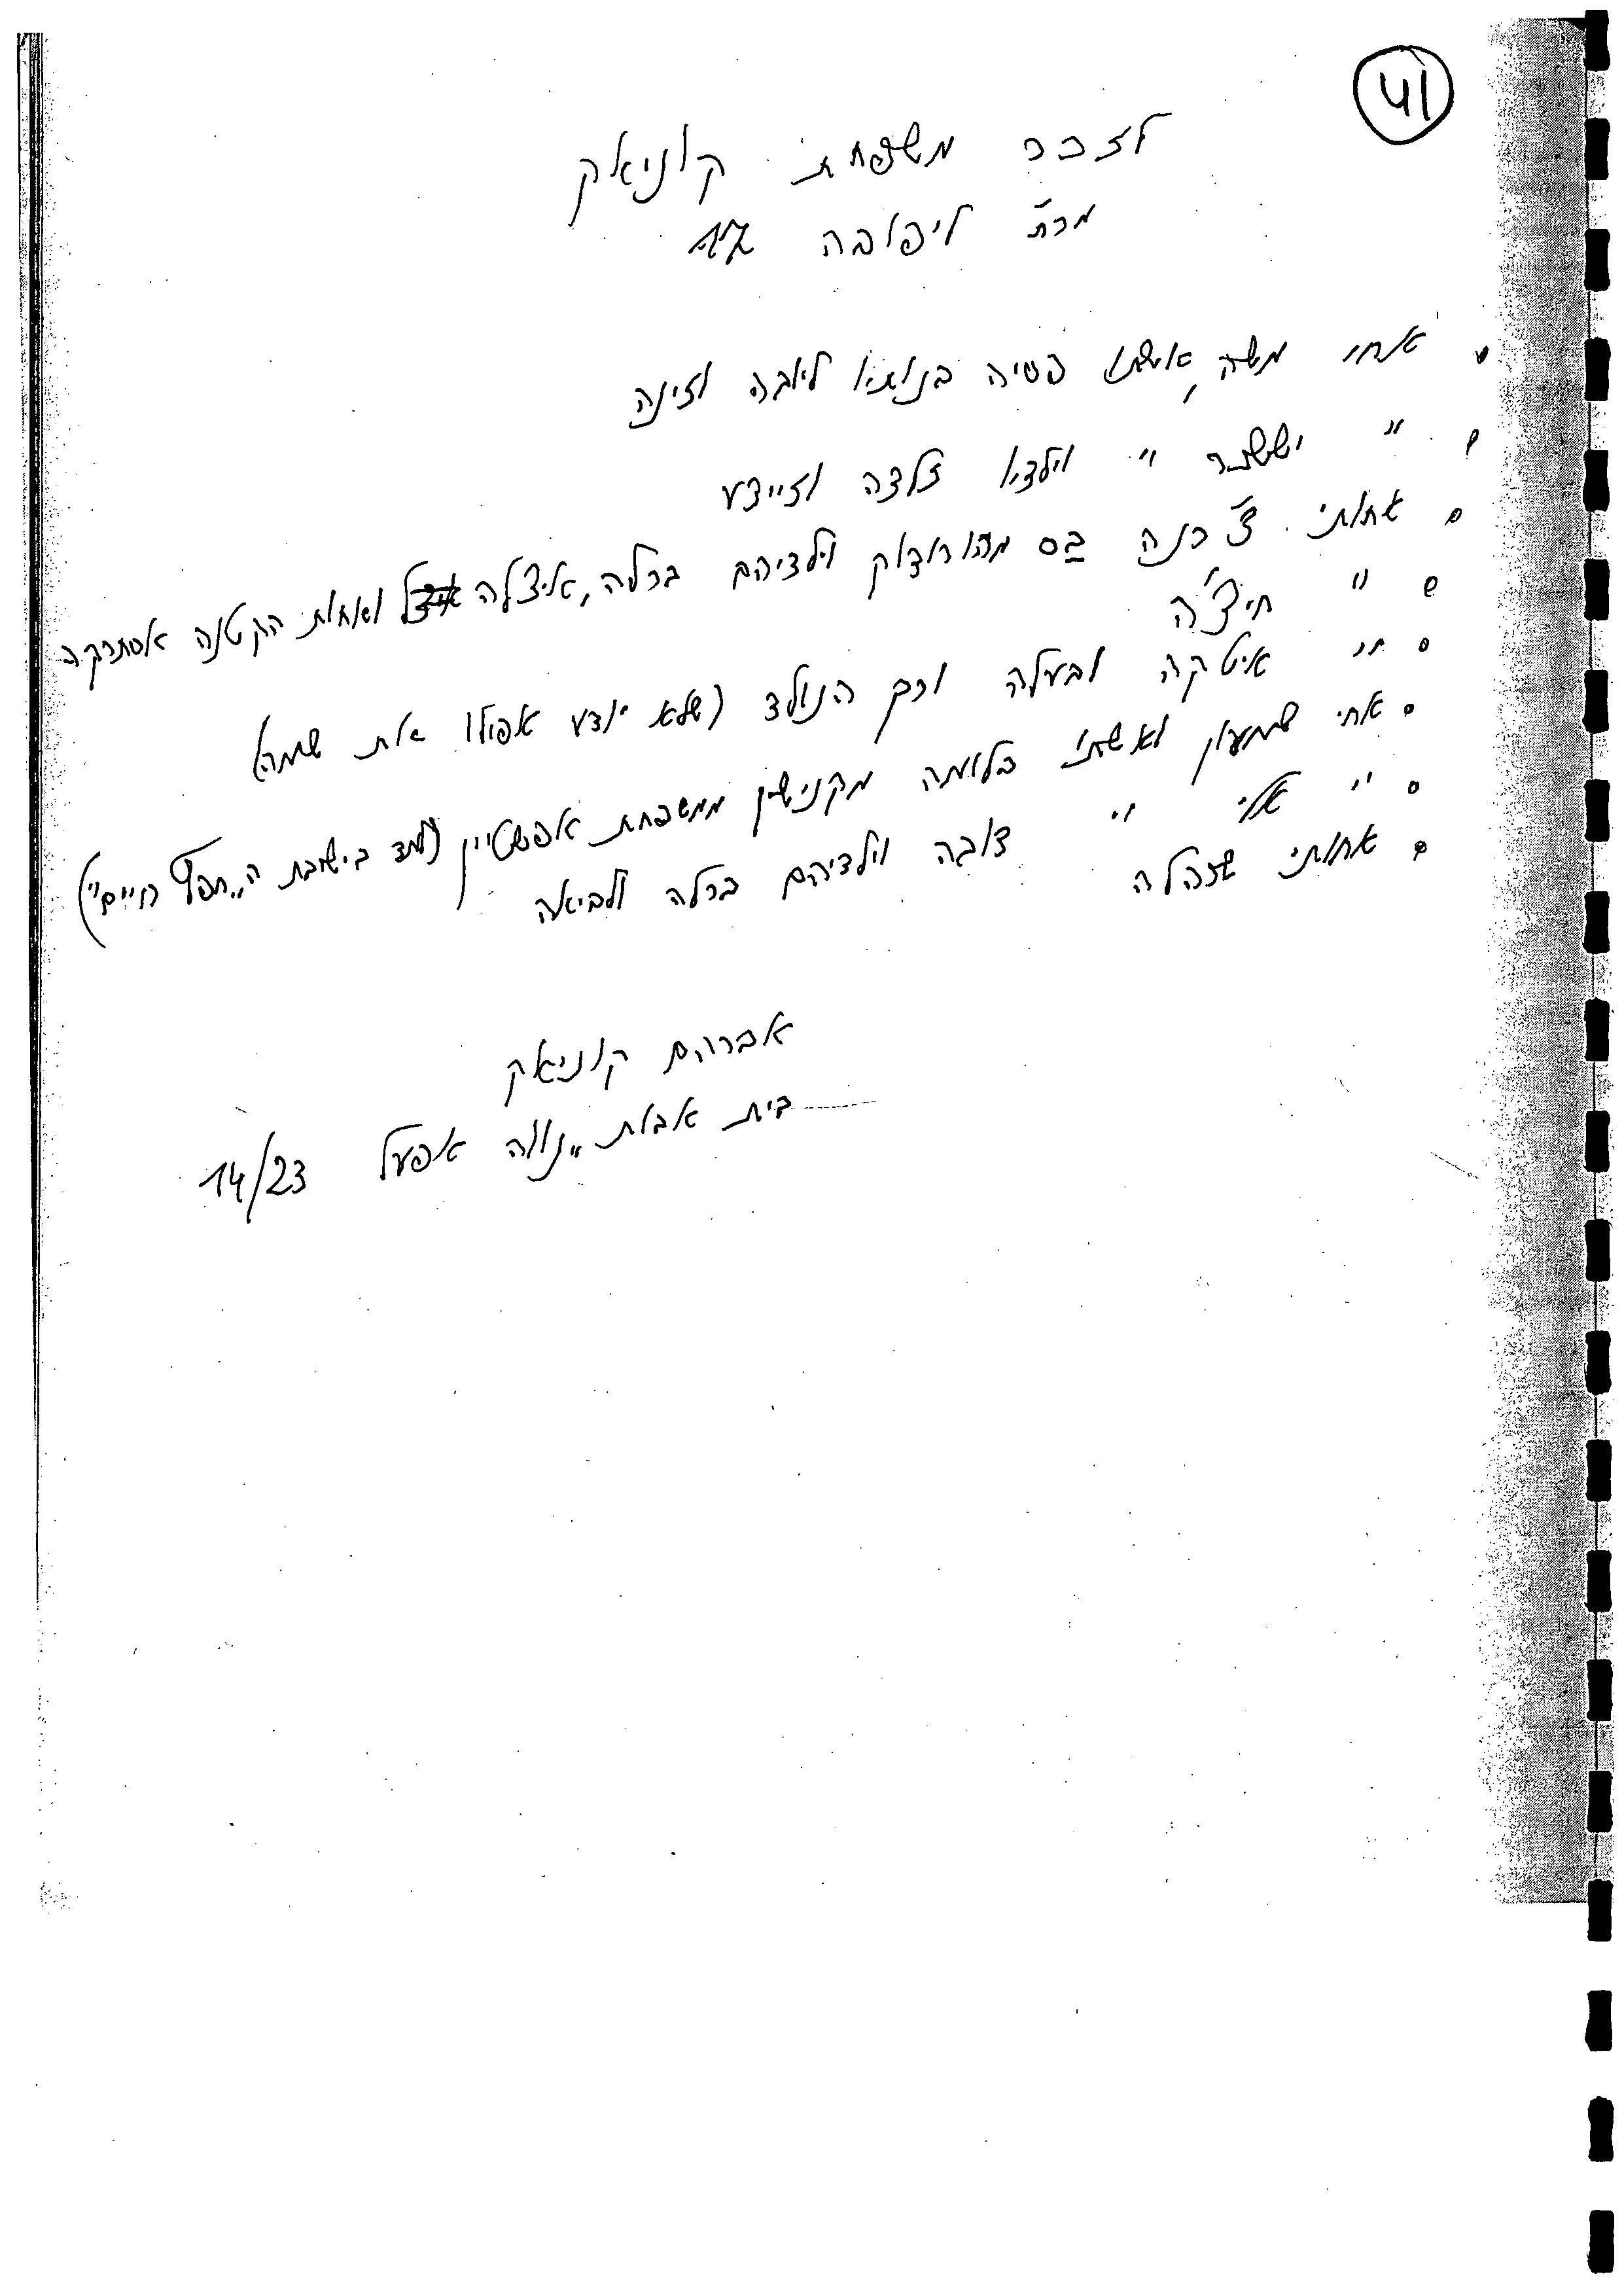 41
לזכר משפחת קוניאק
מרח' ליפובה 17
אחי משה, אשתו פסיה בנותיו ליובה וזינה
" יששכר " וילדיו זלדה וזיידע
אחותי צ'רנה בס מהורודוק וילדיהם ברלה, איצלה ואחות הקטנה אסתרקה
" חיצ'ה
" איטקה ובעלה ורך הנולד (שלא יודע אפולו את שמה)
אחי שמעון ואשתו בלומה מקנישין ממשפחת אפשטיין (למד בישיבת ה"חפץ חיים")
" אלי " דובה וילדיהם ברלה ולביאה
אחותי שזהלה
אברהם קוניאק
בית אבות "נווה אפעל 14/23